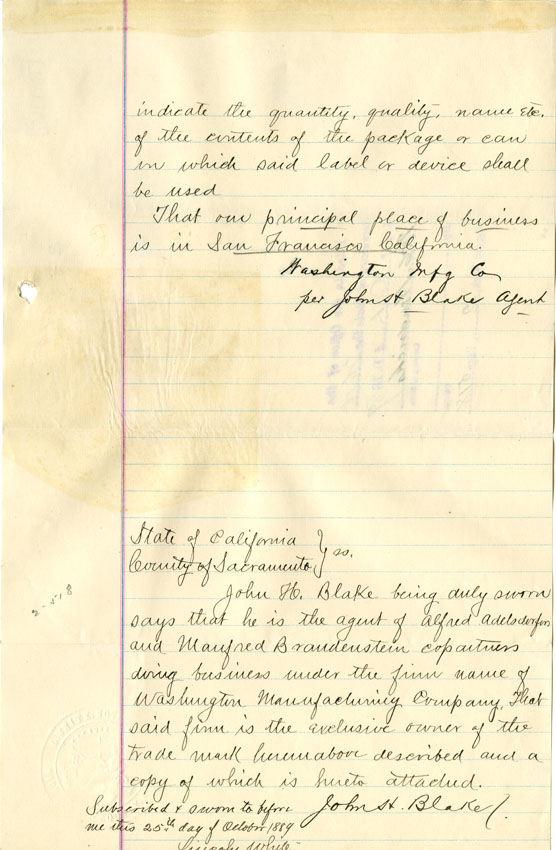 indicate the quantity, quality, name etc.
of the contents of the package or can
in which said label or device shall
be used
That our principal place of business
is in San Francisco California.
Washington Mfg Co
per John H Blake Agent
State of California } ss.
County of Sacramento
John H. Blake being duly sworn
says that he is the agent of Alfred Adelsdorfer
and Manfred Brandenstein copartners
doing business under the firm name of
Washington Manufacturing Company, That
said firm is the exclusive owner of the
trade mark hereinabove described and a
copy of which is hereto attached.
John H. Blake
Subscribed & sworn to before
me this 25th day of October 1889
Lincoln White
2-518